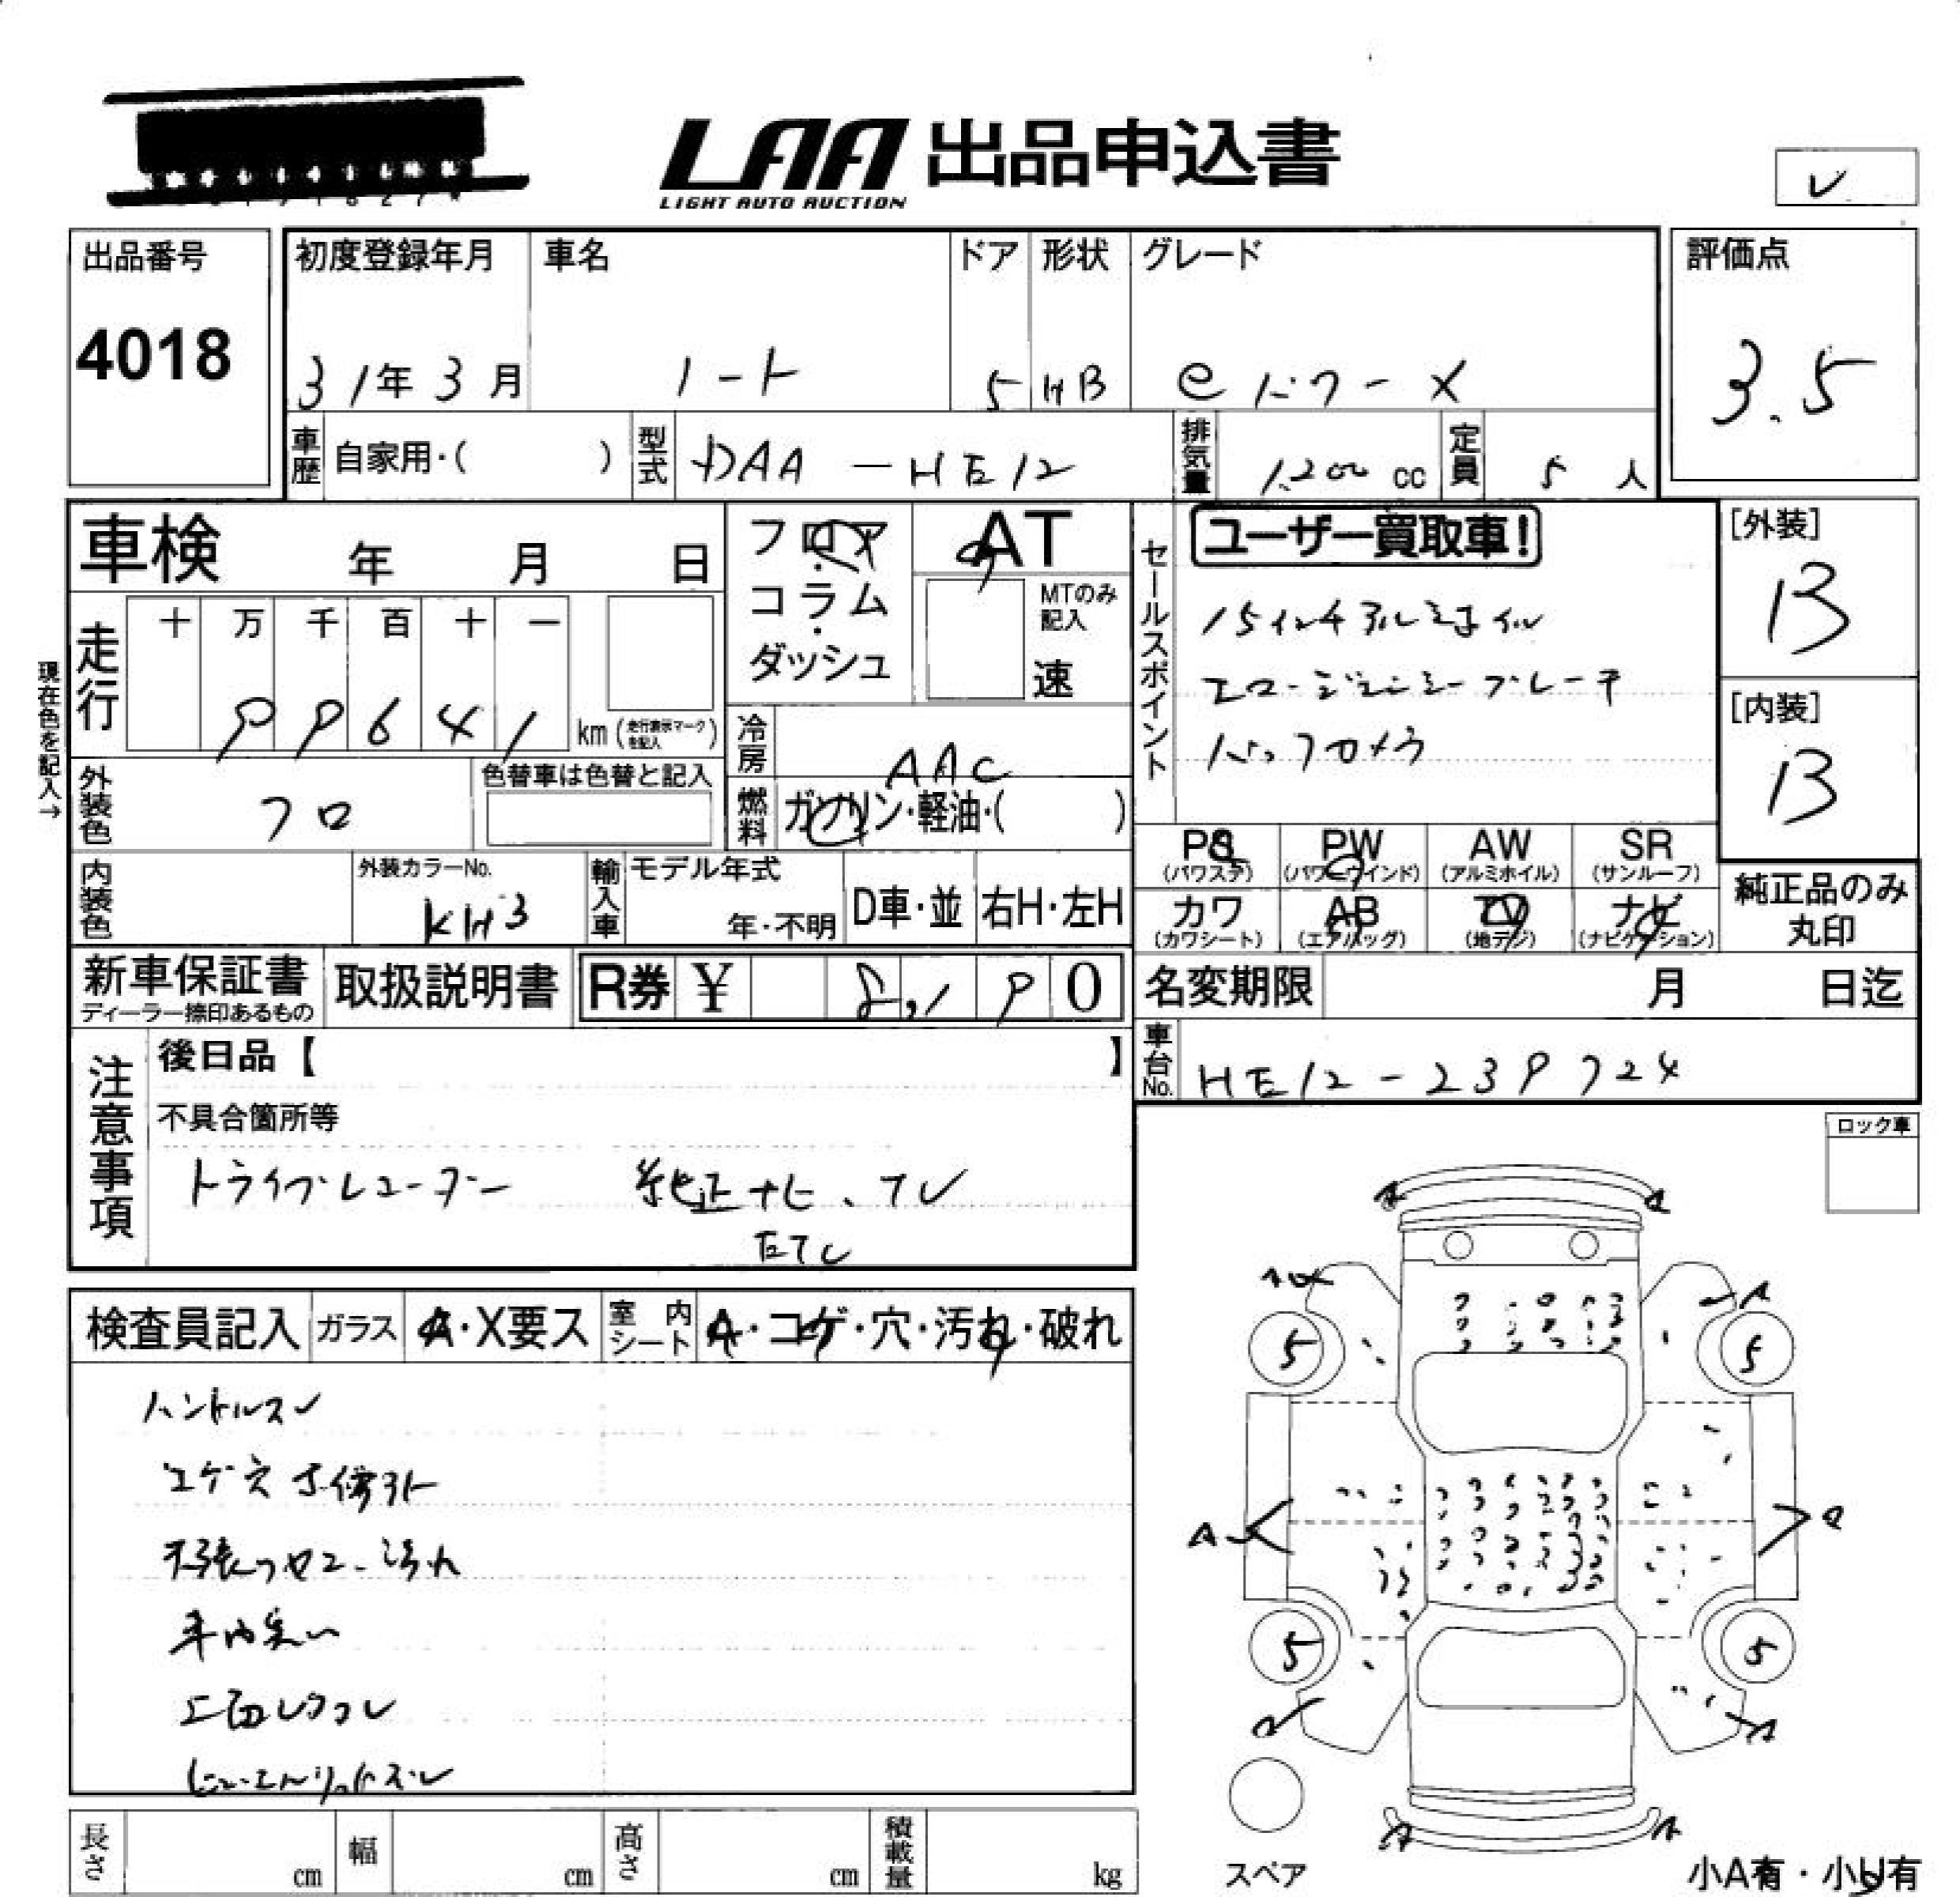 LAA 出品申込書
LIGHT AUTO AUCTION
レ
出品番号
4018
初度登録年月
31年 3月
車名
ノート
ドア
5
形状
HB
グレード
e パワー X
評価点
3.5
車歴 自家用・( )
型式 DAA-HE12
排気量 1200 cc
定員 5 人
車検 年 月 日
フロア・コラム・ダッシュ
AT
MTのみ記入
速
セールスポイント
ユーザー買取車!
15インチアルミホイル
エマージェンシーブレーキ
バックカメラ
[外装]
B
[内装]
B
現在色を記入→
走行
十 万 千 百 十 一
99641 km (走行表示マークを記入)
冷房 AAC
外装色 クロ
色替車は色替と記入
燃料 ガソリン・軽油・( )
PS (パワステ)
PW (パワーウインド)
AW (アルミホイル)
SR (サンルーフ)
カワ (カワシート)
AB (エアバッグ)
TV (地デジ)
ナビ (ナビゲーション)
純正品のみ丸印
内装色
外装カラーNo.
KH3
輸入車
モデル年式
年・不明
D車・並
右H・左H
新車保証書
ディーラー捺印あるもの
取扱説明書
R券 ¥ 8,190
名変期限 月 日迄
車台No. HE12-239724
注意事項
後日品【 】
不具合箇所等
ドライブレコーダー 純正ナビ、TV
ETC
ロック車
検査員記入 ガラス A・X要ス 室内シート A・コゲ・穴・汚れ・破れ
ハンドルスレ
コゲ穴
天張 汚れ
車内臭い
A
A
A
5
5
A
5
5
A
A
A
長さ cm
幅 cm
高さ cm
積載量 kg
スペア
小A有・小U有